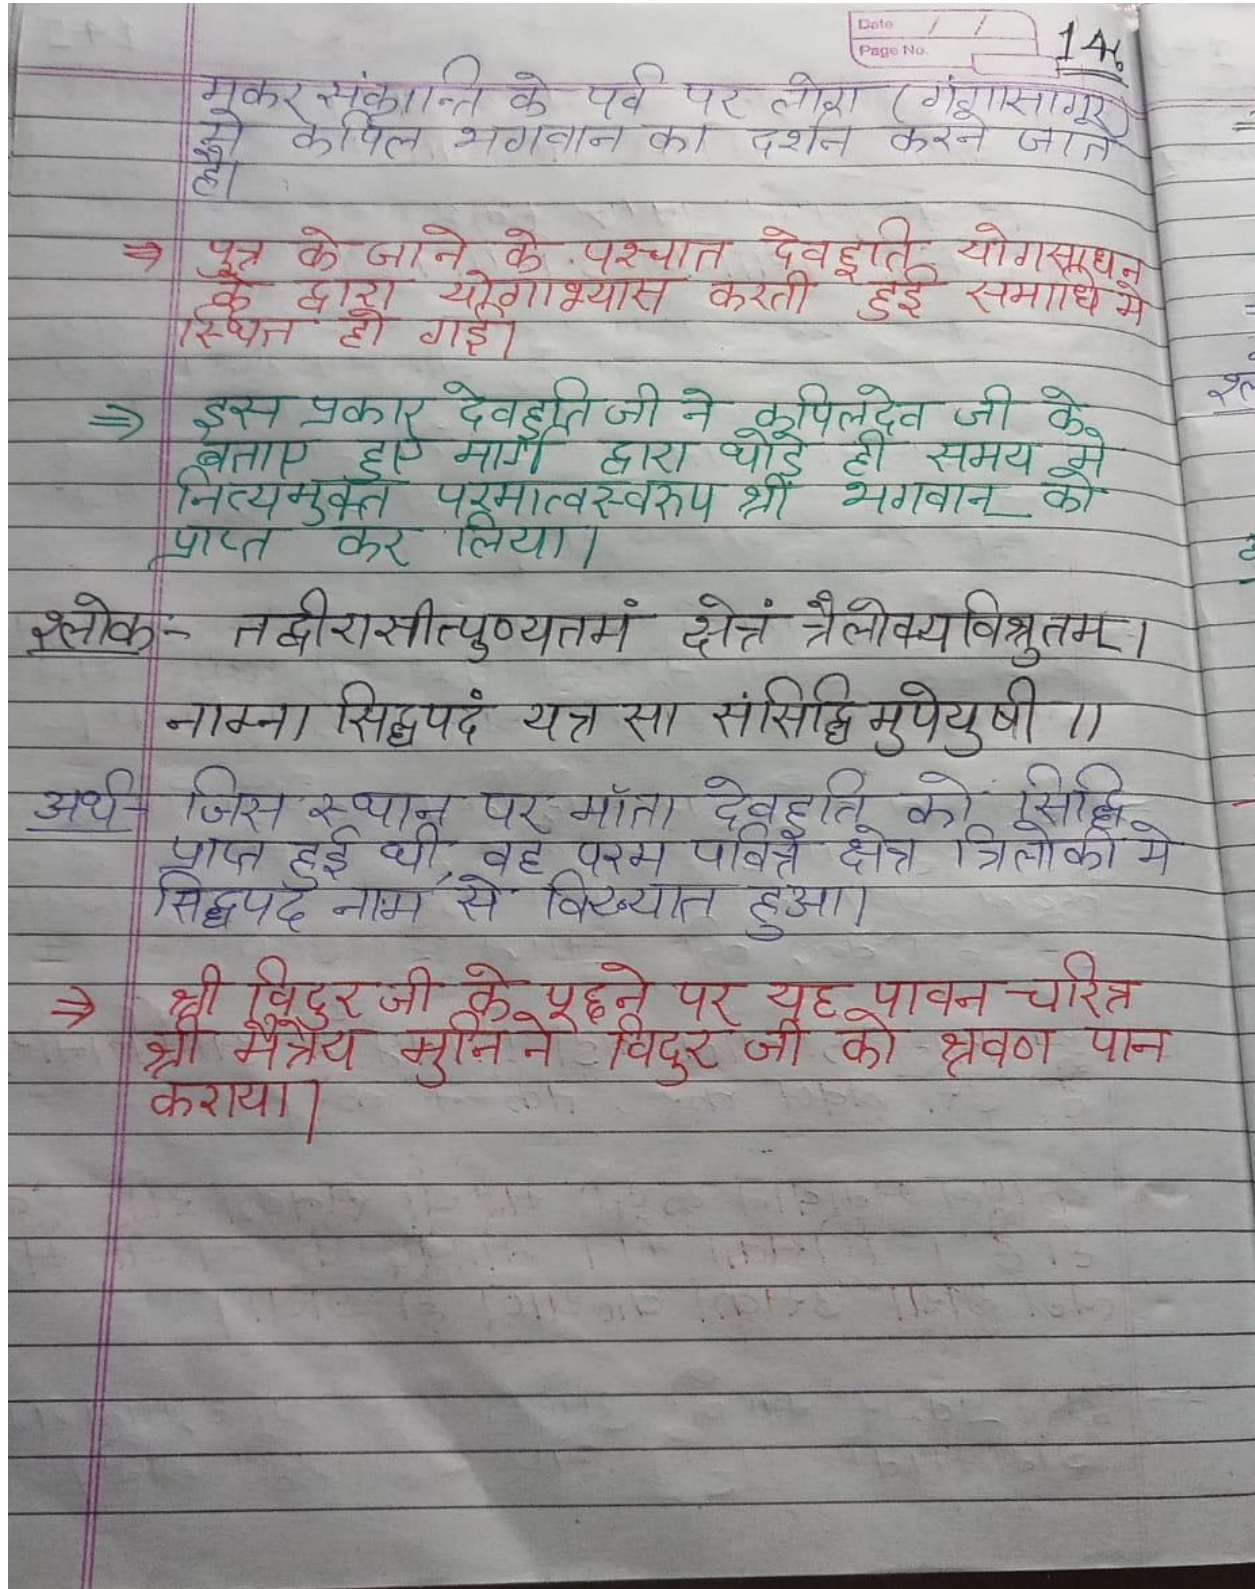 Date / /
Page No.
146
मकर संक्रान्ति के पर्व पर लोग (गंगासागर)
में कपिल भगवान का दर्शन करने जाते
है।
⇒ पुत्र के जाने के पश्चात देवहूति योगसाधन
के द्वारा योगाभ्यास करती हुई समाधि मे
स्थित हो गई।
⇒ इस प्रकार देवहूति जी ने कपिलदेव जी के
बताए हुए मार्ग द्वारा थोड़े ही समय मे
नित्यमुक्त परमात्वस्वरुप श्री भगवान् को
प्राप्त कर लिया।
श्लोक - तद्वीरासीत्पुण्यतमं क्षेत्रं त्रैलोक्यविश्रुतम्।
नाम्ना सिद्धपदं यत्र सा संसिद्धिमुपेयुषी ॥
अर्थ - जिस स्थान पर मॉता देवहूति को सिद्धि
प्राप्त हुई थी, वह परम पवित्र क्षेत्र त्रिलोकी मे
सिद्धपद नाम से विख्यात हुआ।
⇒ श्री विदुर जी के पूछने पर यह पावन चरित्र
श्री मैत्रेय मुनि ने विदुर जी को श्रवण पान
कराया।